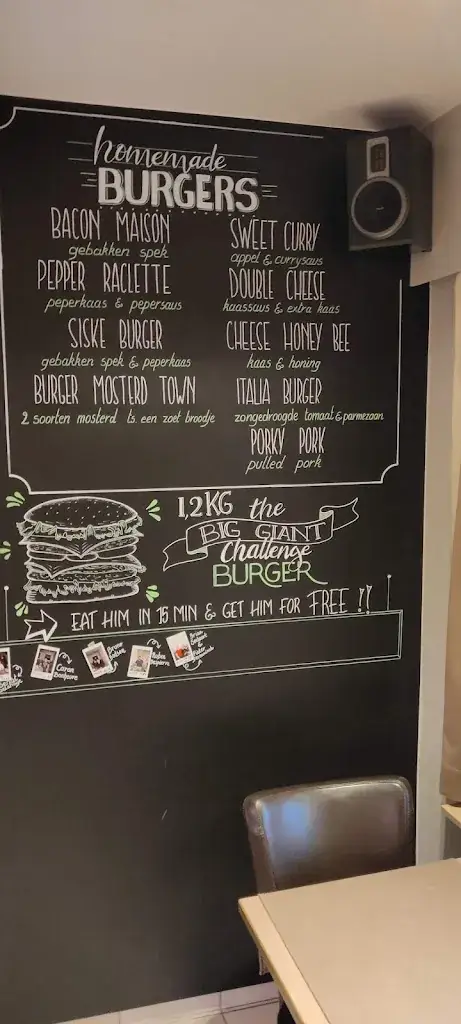 homemade
BURGERS
BACON MAISON
gebakken spek
PEPPER RACLETTE
peperkaas & pepersaus
SISKE BURGER
gebakken spek & peperkaas
BURGER MOSTERD TOWN
2 soorten mosterd ts. een zoet broodje
SWEET CURRY
appel & currysaus
DOUBLE CHEESE
kaassaus & extra kaas
CHEESE HONEY BEE
kaas & honing
ITALIA BURGER
zongedroogde tomaat & parmezaan
PORKY PORK
pulled pork
1,2KG the
BIG GIANT
Challenge
BURGER
EAT HIM IN 15 MIN & GET HIM FOR FREE !!